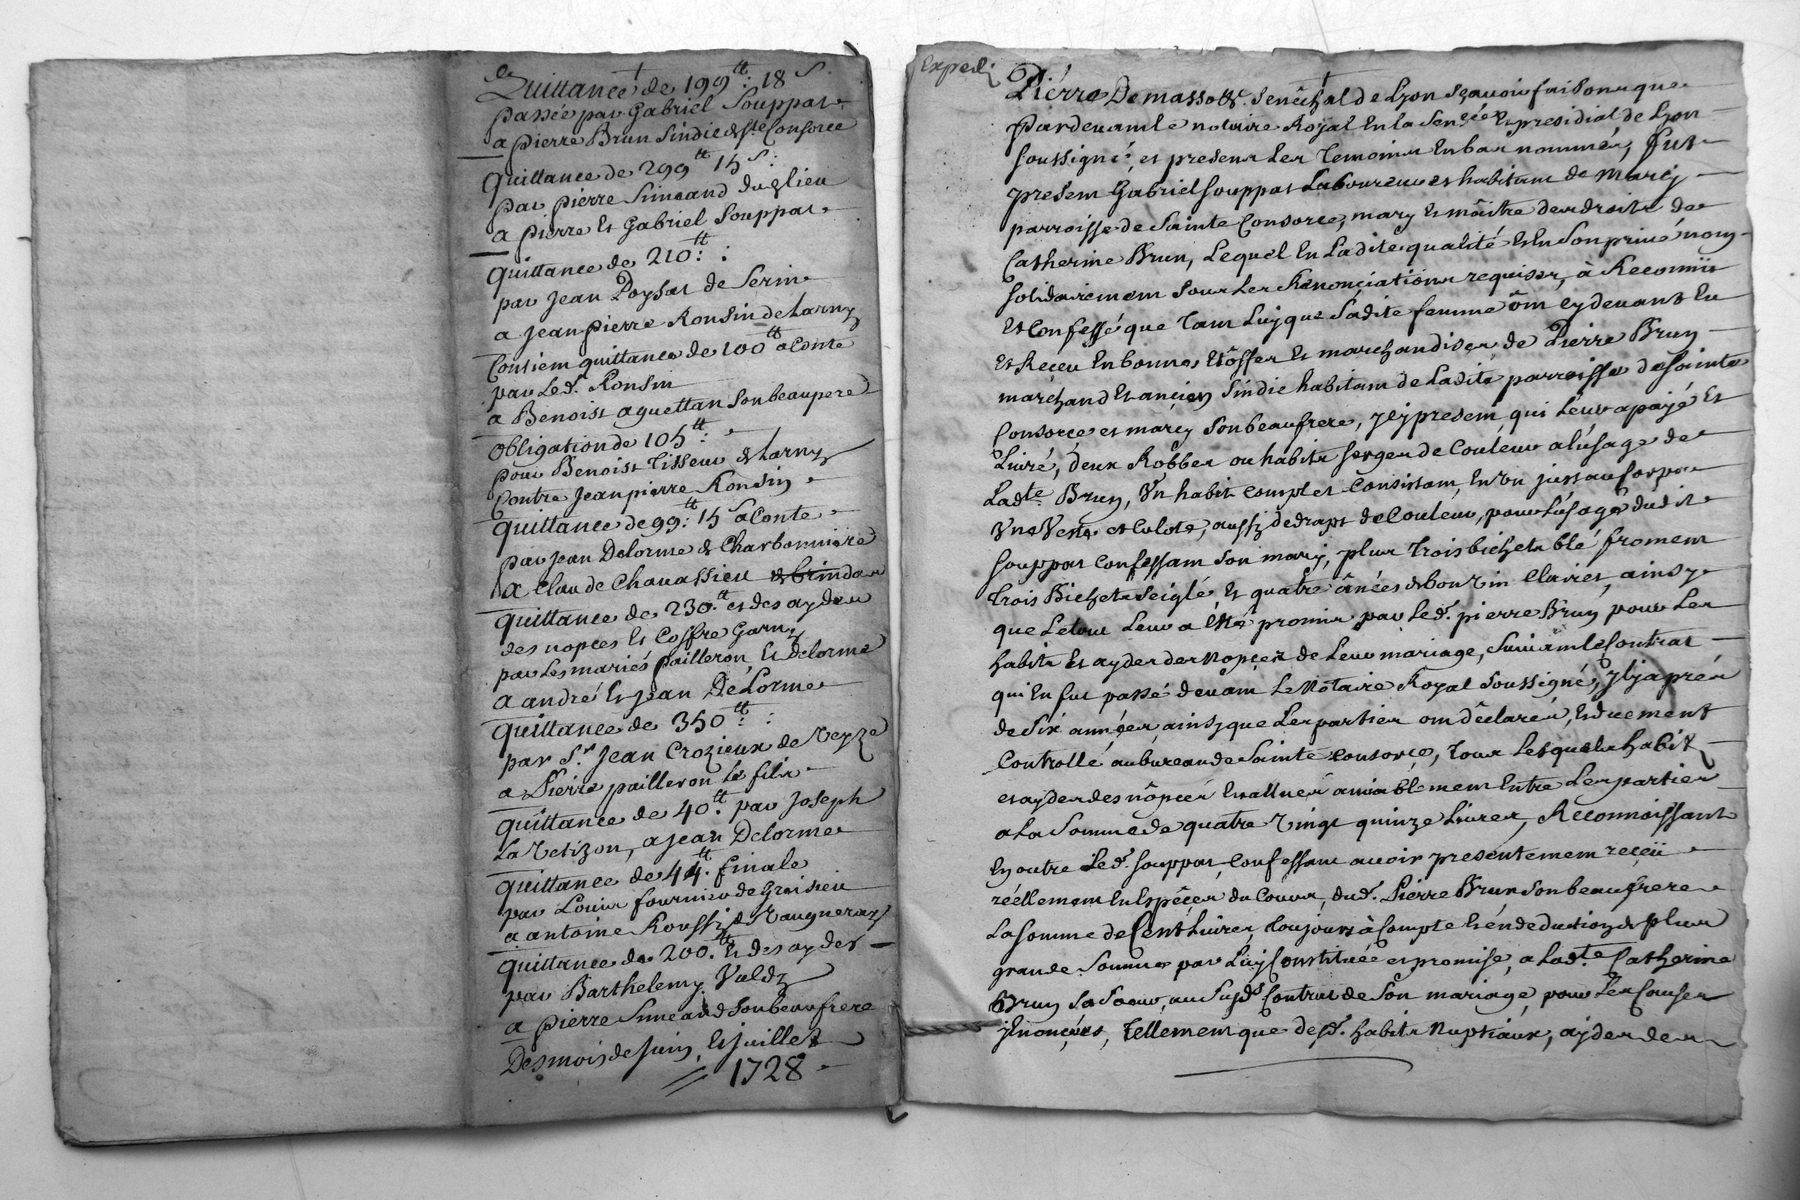 Quittance de 199tt. 18 s.
passée par Gabriel Souppat
a pierre Brun Sindic de Ste Consorce
Quittance de 299tt 15 s:
par pierre Simeand
a pierre et Gabriel Souppat
Quittance de 210tt:
par Jean Poysat de Serin
a Jean pierre Ronsin de Larny
Contient quittance de 100tt a Conte
par Led. Ronsin
a Benoist aguettan Son beaupere
Obligation de 105tt:
pour Benoist Tisseur de Larny
Contre Jean pierre Ronsin
Quittance de 99:tt 15 s a Conte
par Jean Delorme de Charbonniere
a Claude Chavassieu de Brindas
Quittance de 230.tt et des aydes
des nopces et Coffre Garny
par Les mariés pailleron et Delorme
a andré et Jean Delorme
Quittance de 350tt:
par Sr. Jean Crozieux de Veyze
a Pierre pailleron Le fils
Quittance de 40.tt par Joseph
La Vetizon, a Jean Delorme
Quittance de 44.tt finale
par Louis fournier de Graisieu
a antoine Roussy de Vaugneray
Quittance de 200.tt et des aydes
par Barthelemy
a pierre Simeand Son beaufrere
Des mois de Juin, et Juillet
1728
Exped.
Pierre Demasso &c. Senéchal de Lyon Sçavoir faisons que
Pardevant le notaire Royal en la Sen.cée et presidial de Lyon
Soussigné et present Les Temoins En bas nommés, fut
present Gabriel Souppat Laboureur et habitant de Marcy
parroisse de Sainte Consorce, mary et maitre des droits de
Catherine Brun, Lequel En Ladite qualité et En Son privé nom
Solidairement Sous Les Renonciations requises, à Reconnü
et Confessé que Tant Luy que Sadite femme ont cydevant Eu
et Reçeu En bonnes Etôffes et marchandises de Pierre Brun
marchand et ançien Sindic habitant de Ladite parroisse de Sainte
Consorce et marcy Son beaufrere, Jcy present, qui Leur a payé et
Livré, deux Robbes ou habits serges de Couleur a Lusage de
Ladte. Brun, Un habit Complet Consistant, En un justaucorps
Une Veste et Culote, aussy de draps de Couleur, pour Lusage dudit
Souppat Confessant Son mary, plus Trois bichets blé froment
Trois Bichets Seigle et quatre ânées de bon Vin Clairet, ainsy
que Letout Leur a Etté promis par Led. pierre Brun pour Les
habits et aydes des Nopçes de Leur mariage, Suivant Le Contrat
qui En fut passé devant Le Notaire Royal Soussigné, Jl y a prés
de Six années, ainsy que Les parties ont déclarés, et duement
Controllé au bureau de Sainte Consorce, Tous Lesquels habits
et aydes des nôpces Evalluer amiablement Entre Les parties
a La Somme de quatre Vingt quinze Livres, Reconnoissant
En outre Led. Souppat, Confessant avoir presentement reçeü
réellement En Espéces du Cours, dud. Pierre Brun Son beaufrere
La Somme de Cent Livres, Toujours à Compte et En deduction de plus
grande Somme par Luy Constituée et promise, a Ladte. Catherine
Brun Sa Soeur, au Susd. Contrat de Son mariage, pour Les Causes
y Enoncées, Tellement que desd. habits Nuptiaux, aydes des